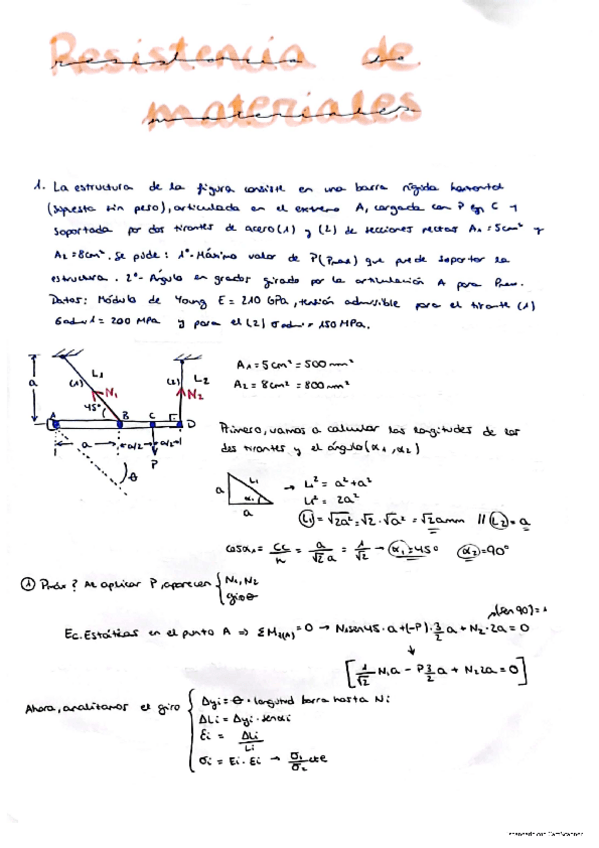 Resistencia de
materiales
1. La estructura de la figura consiste en una barra rígida horizontal
(supuesta sin peso), articulada en el extremo A, cargada con P en C y
soportada por dos tirantes de acero (1) y (2) de secciones rectas A1 = 5cm² y
A2 = 8cm². Se pide: 1º- Máximo valor de P (Pmax) que puede soportar la
estructura. 2º- Ángulo en grados girado por la articulación A para Pmax.
Datos: Módulo de Young E = 210 GPa, tensión admisible para el tirante (1)
σadm1 = 200 MPa y para el (2) σadm = 150 MPa.
a
L1
(1)
N1
45º
(2)
L2
N2
A
B
C
D
a
a/2
a/2
P
θ
A1 = 5cm² = 500 mm²
A2 = 8cm² = 800 mm²
Primero, vamos a calcular las longitudes de los
dos tirantes y el ángulo (α1, α2)
a
L1
α1
a
→ L1² = a² + a²
L1² = 2a²
L1 = √2a² = √2 · √a² = √2 a mm // L2 = a
cosα1 = cc/h = a/√2a = 1/√2 → α1 = 45º α2 = 90º
① Pmáx? Al aplicar P, aparecen { N1, N2
giro θ
(sen 90) = 1
Ec. Estáticas en el punto A ⇒ ΣMz(A) = 0 → N1 sen45 · a + (-P) · 3/2 a + N2 · 2a = 0
[ 1/√2 N1a - P 3/2 a + N2 2a = 0 ]
Ahora, analizamos el giro { Δyi = θ · longitud barra hasta Ni
ΔLi = Δyi · senαi
εi = ΔLi/Li
σi = Ei · εi → σ1/σ2 cte